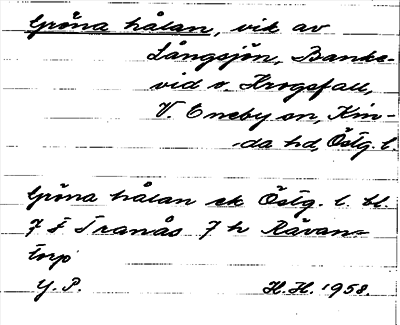 Gröna hålan, vik av
Långsjön, Banke-
vid v. Krogsfall,
V. Eneby sn, Kin-
da hd, Östg. l.
Gröna hålan ek Östg. l. bl.
7 F Tranås 7 h Rävan-
torp
G. P. H. H. 1958.